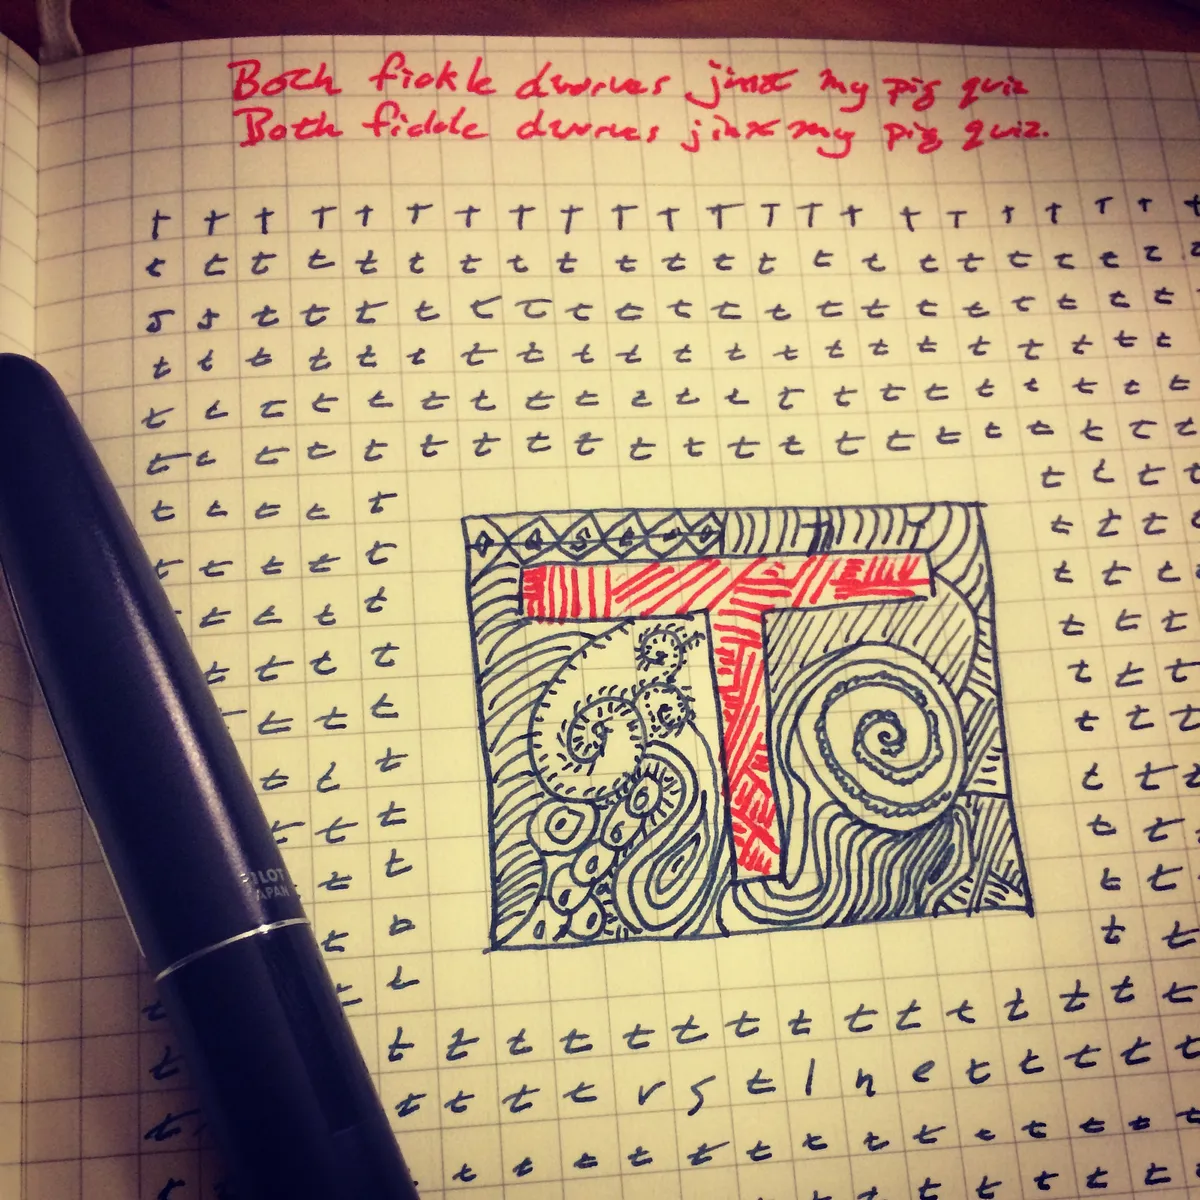 Both fickle dwarves jinx my pig quiz
Both fickle dwarves jinx my pig quiz.
T T T T T T T T T T T T T T T T T T T T T T
t t t t t t t t t t t t t t t t t t t t t t
s s t t t t t t t t t t t t t t t t t t t
t t t t t t t t t t t t t t t t t t t t t
t t t t t t t t t t t t t t t t t t t t t
t t t t t t t t t t t t t t t t t t t t t
t t t t t t t t t
t t t t t t t t
t t t t t t t t
t t t t t t t
T
t t t t t t
t t t t t t
t t t t t t
t t t t t
t t t t t
t t t t
t t t t t t t t t t t t t t t t
t t t t t r s t l n e t t t t t
t t t t t t t t t t t t t t t
PILOT
JAPAN